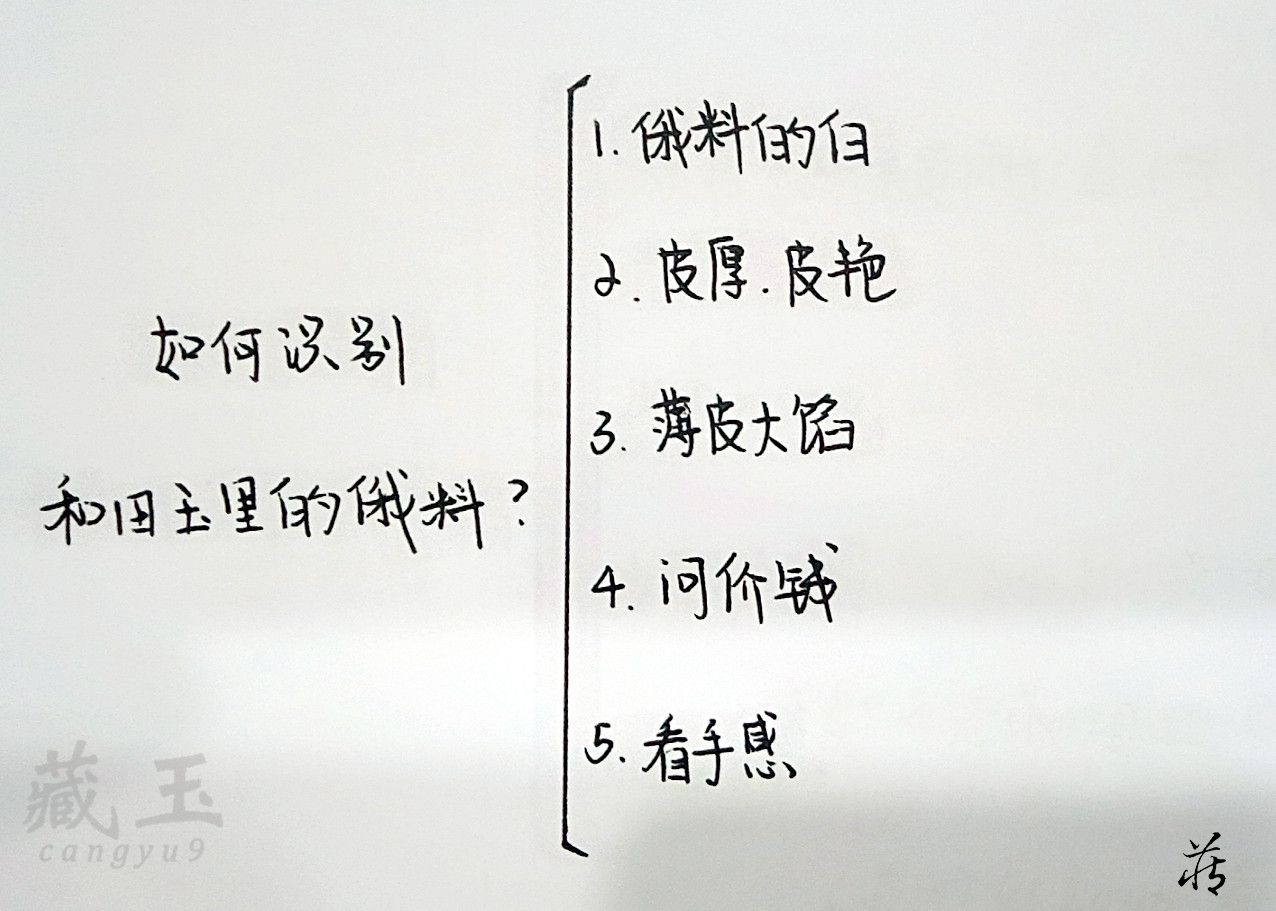 如何识别
和田玉里的俄料?
1. 俄料的白
2. 皮厚.皮艳
3. 薄皮大馅
4. 问价钱
5. 看手感
藏玉
cangyu9